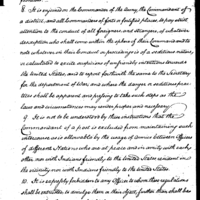 8. It is enjoined on the Commander of the Army, the Commandant of
a district, and all Commanders of forts or fortified places, to pay strict
attention to the conduct of all foreigners and strangers, of whatever
description who shall come within the sphere of their Commands and to
watch whenever their conduct or pursuits are of a sedition nature
is calculated to excite suspicions of unfriendly intentions towards
the United States, and to report forthwith the same to the Secretary
for the department of War, and where the danger or sedition
shall be apparent or pressing to take such steps as the
laws and circumstances may render proper and necessary.
9. It is not to be understood by these instructions that the
Commandant of a post is excluded from maintaining such
intercourse as is allowable by the usage of armies between officers
of different Nations who are at peace and in amity with each
other nor with Indians friendly to the United States resident in
the vicinity nor with Indians friendly to the United States.
10. It is expressly forbidden to any Officer to whom these regulations
shall be to divulge them or their object, further than shall be